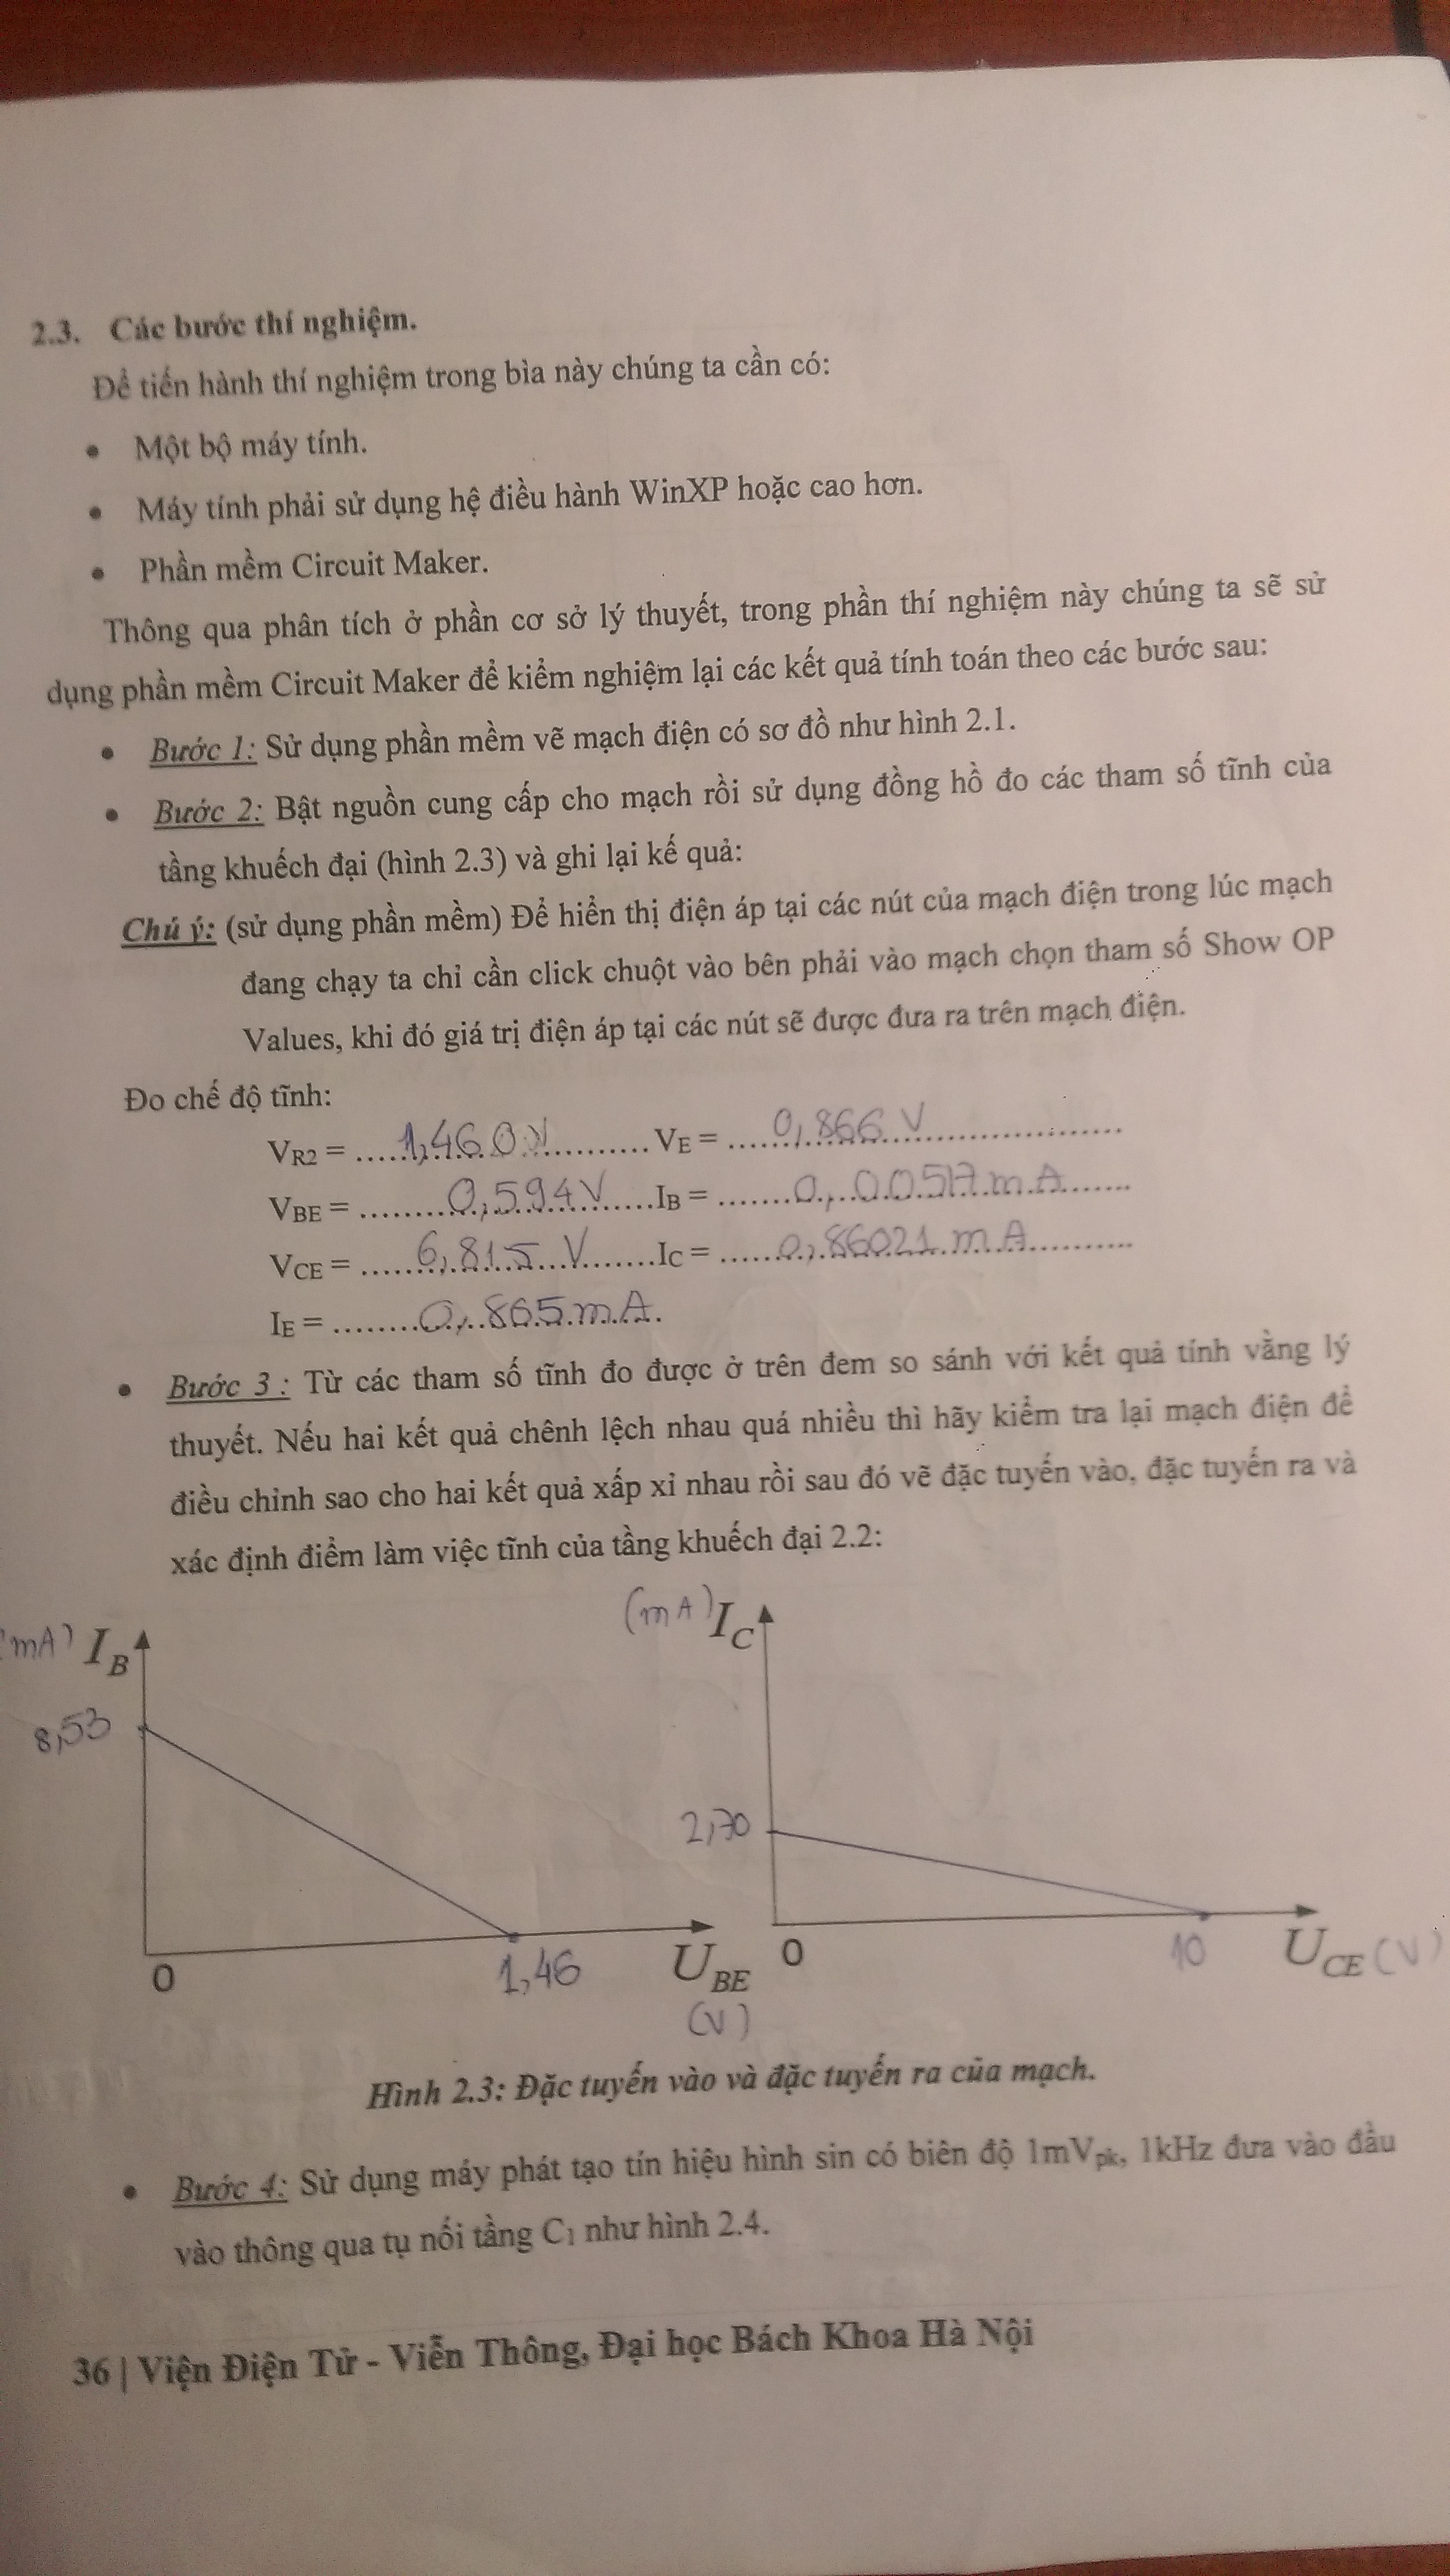 2.3. Các bước thí nghiệm.
Để tiến hành thí nghiệm trong bìa này chúng ta cần có:
• Một bộ máy tính.
• Máy tính phải sử dụng hệ điều hành WinXP hoặc cao hơn.
• Phần mềm Circuit Maker.
Thông qua phân tích ở phần cơ sở lý thuyết, trong phần thí nghiệm này chúng ta sẽ sử
dụng phần mềm Circuit Maker để kiểm nghiệm lại các kết quả tính toán theo các bước sau:
• Bước 1: Sử dụng phần mềm vẽ mạch điện có sơ đồ như hình 2.1.
• Bước 2: Bật nguồn cung cấp cho mạch rồi sử dụng đồng hồ đo các tham số tĩnh của
tầng khuếch đại (hình 2.3) và ghi lại kế quả:
Chú ý: (sử dụng phần mềm) Để hiển thị điện áp tại các nút của mạch điện trong lúc mạch
đang chạy ta chỉ cần click chuột vào bên phải vào mạch chọn tham số Show OP
Values, khi đó giá trị điện áp tại các nút sẽ được đưa ra trên mạch điện.
Đo chế độ tĩnh:
VR2 = .....1,460 V........... VE = ......0,866 V......................
VBE = .........0,594V.....IB = .......0,00517mA.......
VCE = ......6,815 V.......IC = ......0,86021 mA...........
IE = ........0,865mA.
• Bước 3 : Từ các tham số tĩnh đo được ở trên đem so sánh với kết quả tính vằng lý
thuyết. Nếu hai kết quả chênh lệch nhau quá nhiều thì hãy kiểm tra lại mạch điện để
điều chỉnh sao cho hai kết quả xấp xỉ nhau rồi sau đó vẽ đặc tuyến vào, đặc tuyến ra và
xác định điểm làm việc tĩnh của tầng khuếch đại 2.2:
(mA) IB
8,53
0
1,46
UBE
(V)
(mA) IC
2,70
0
10
UCE (V)
Hình 2.3: Đặc tuyến vào và đặc tuyến ra của mạch.
• Bước 4: Sử dụng máy phát tạo tín hiệu hình sin có biên độ 1mVpk, 1kHz đưa vào đầu
vào thông qua tụ nối tầng C1 như hình 2.4.
36 | Viện Điện Tử - Viễn Thông, Đại học Bách Khoa Hà Nội